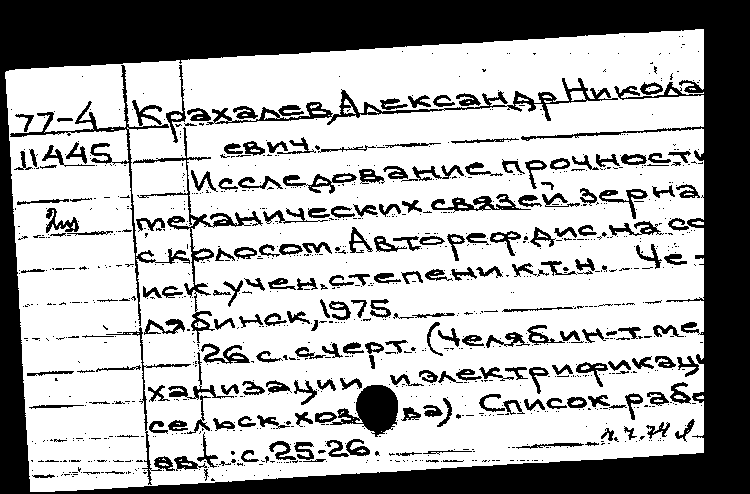 77-4 Крахалев, Александр Никола
11445 евич.
Исследование прочности
2 механических связей зерна
с колосом. Автореф. дис. на со
иск. учен. степени к.т.н. Че-
лябинск, 1975.
26 с. с черт. (Челяб. ин-т ме
ханизации и электрификаци
сельск. хоз ва). Список рабо
авт.: с. 25-26.